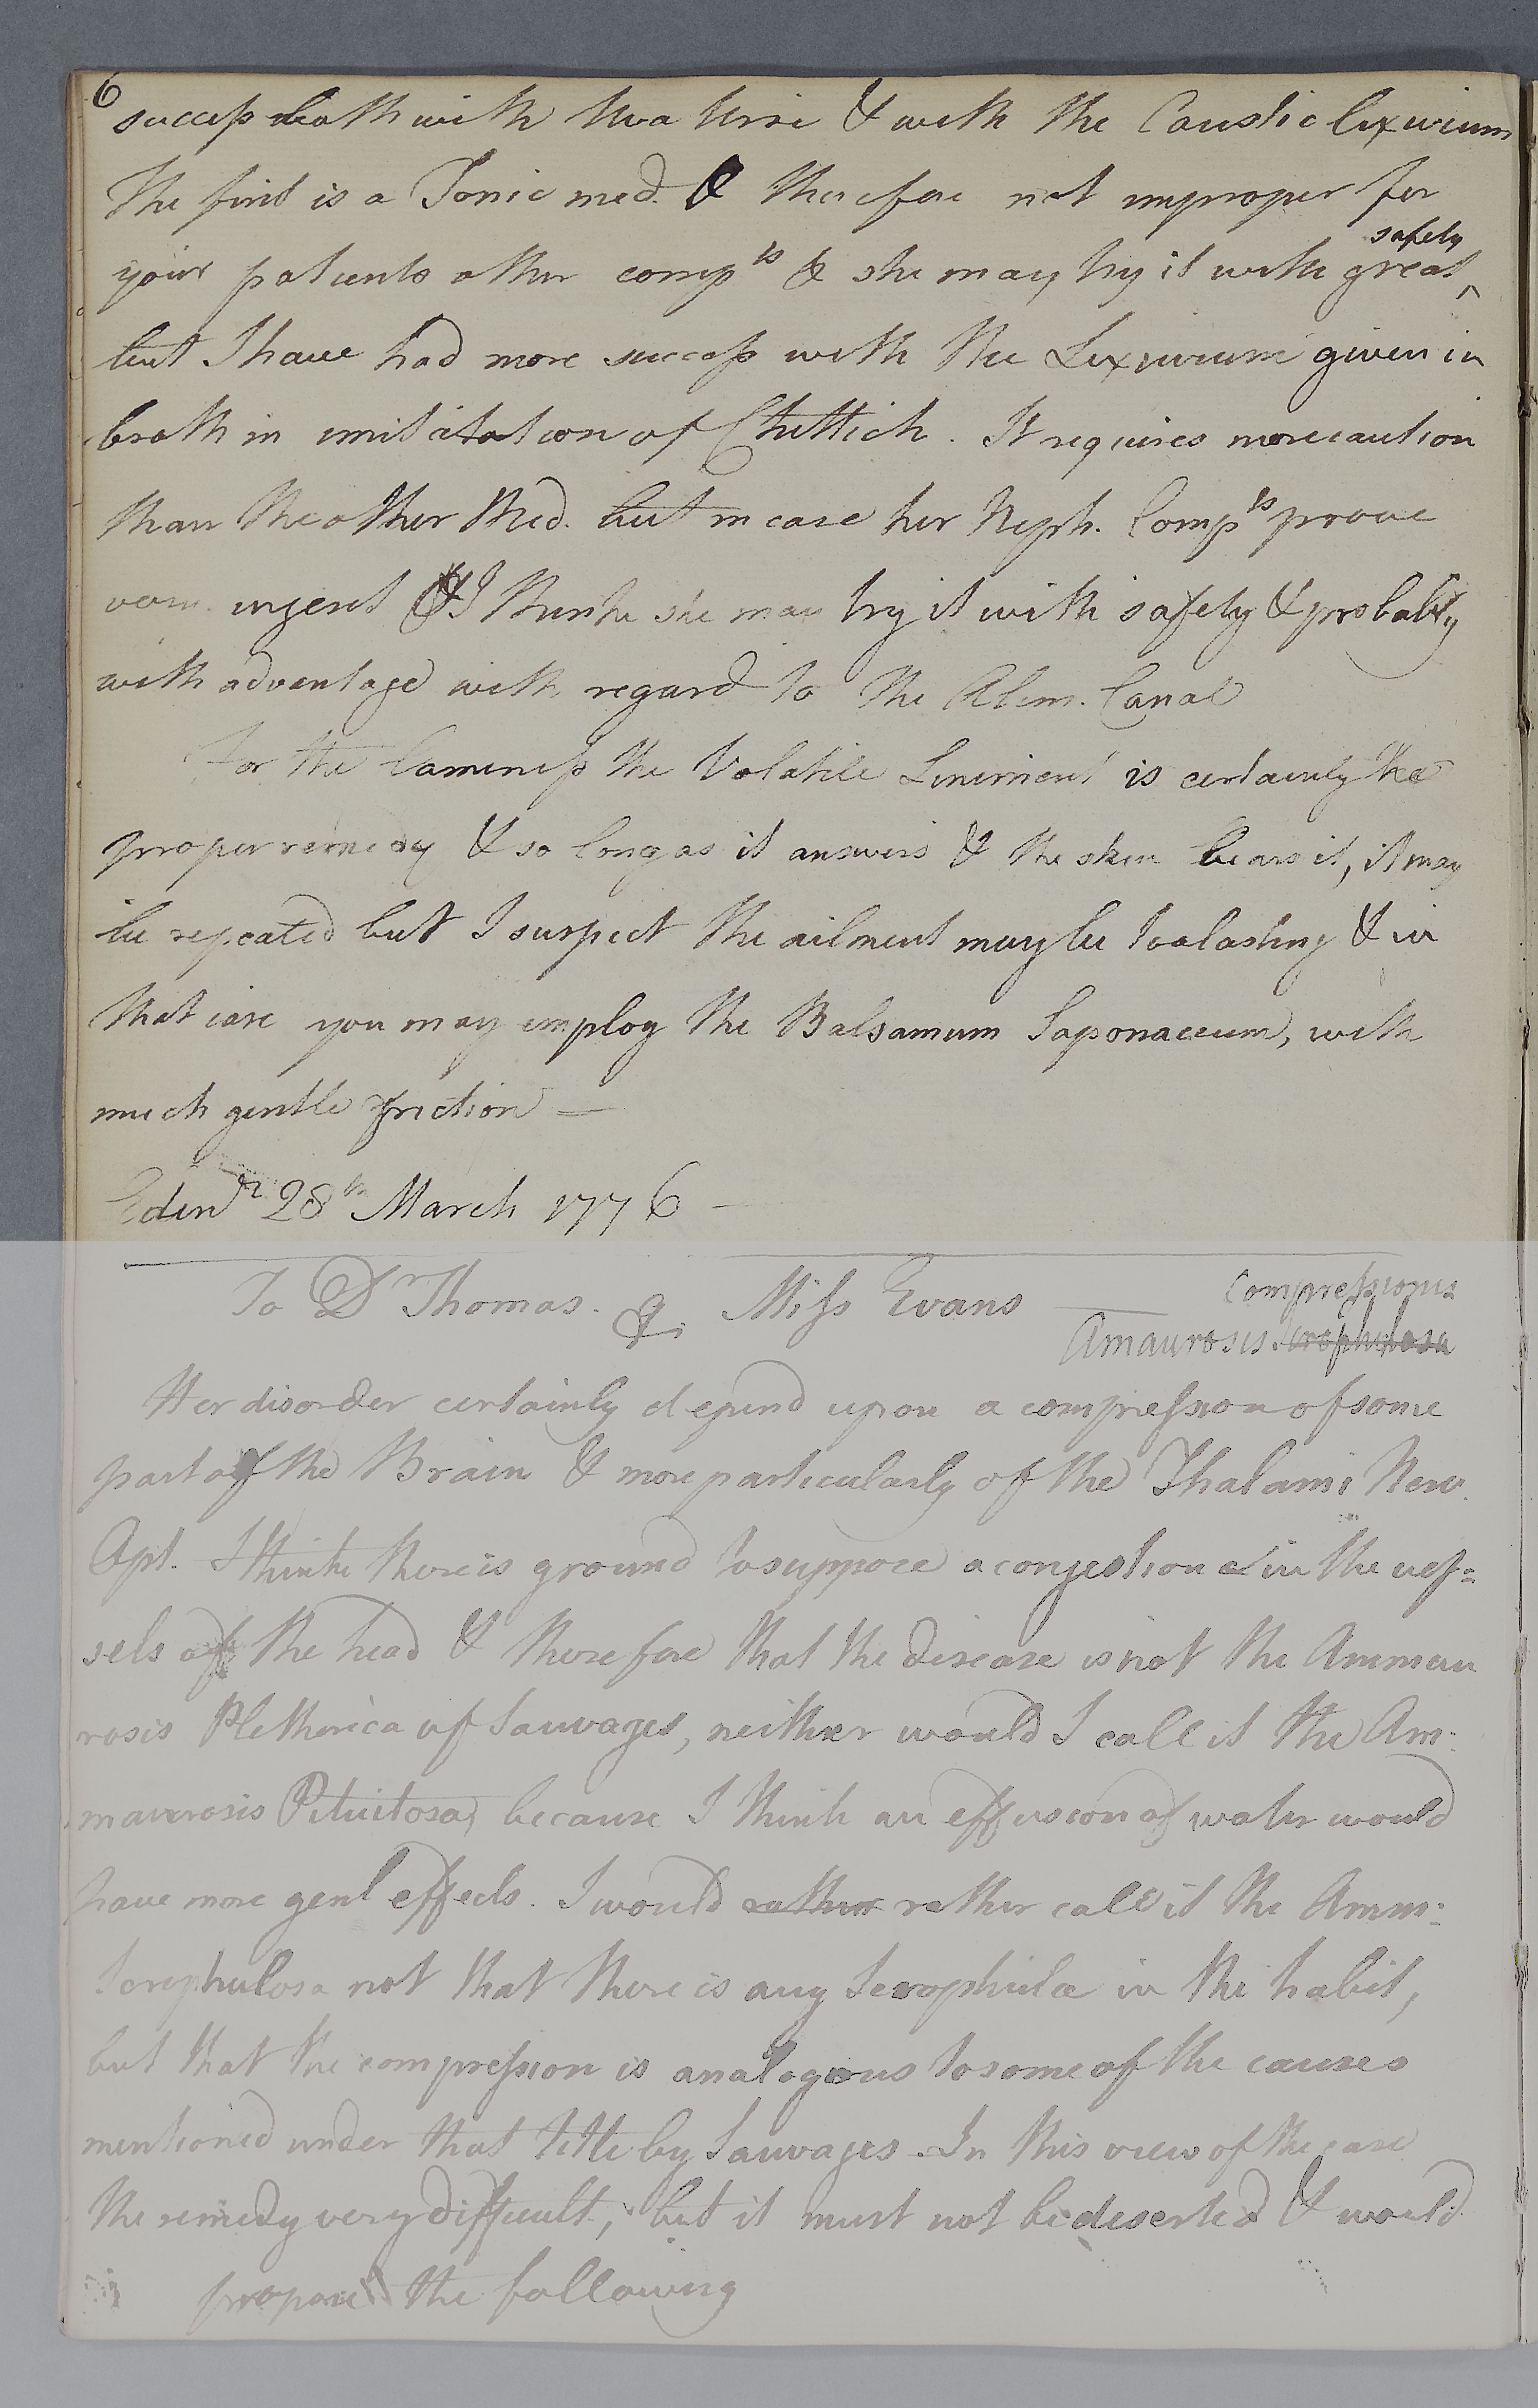 6
success both with Uva Ursi & with the Caustic lixivium
The first is a Tonic med. & therefore not improper for
your patients other comp.ts & she may try it with great safety
but I have had more success with the Lixivium given in
broth in imitatation of Chittich. It requires more caution
than the other Med. but in case her Neph. Comp.ts prove
very urgent I think she may try it with safety & probably
with advantage with regard to the Alim. Canal
For the lameness the Volatile Liniment is certainly the
proper remedy & so long as it answers & the skin bears it, it may
be repeated but I suspect the ailment may be too lasting & in
that case you may employ the Balsamum Saponaceum, with
much gentle friction —
Edinr 28th March 1776 —
To Dr Thomas. q. Miss Evans — Compressionis
Amaurosis Scrophulosa
Her disorder certainly depend upon a compression of some
part of the Brain & more particularly of the Thalami Nerv.
Opt. I think there is ground to suppose a congestion in the ves=
sels of the head & therefore that the disease is not the Ammau
rosis Plethorica of Sauvages, neither would I call it the Am:
maurosis Pituitosa, because I think an effusion of water would
have more genl effects. I would rather rather call it the Amm:
Scrophulosa not that there is any Scrophulæ in the habit,
but that the compression is analogous to some of the causes
mentioned under that title by Sauvages. In this view of the case
the remedy very difficult, but it must not be deserted & would
propose the following